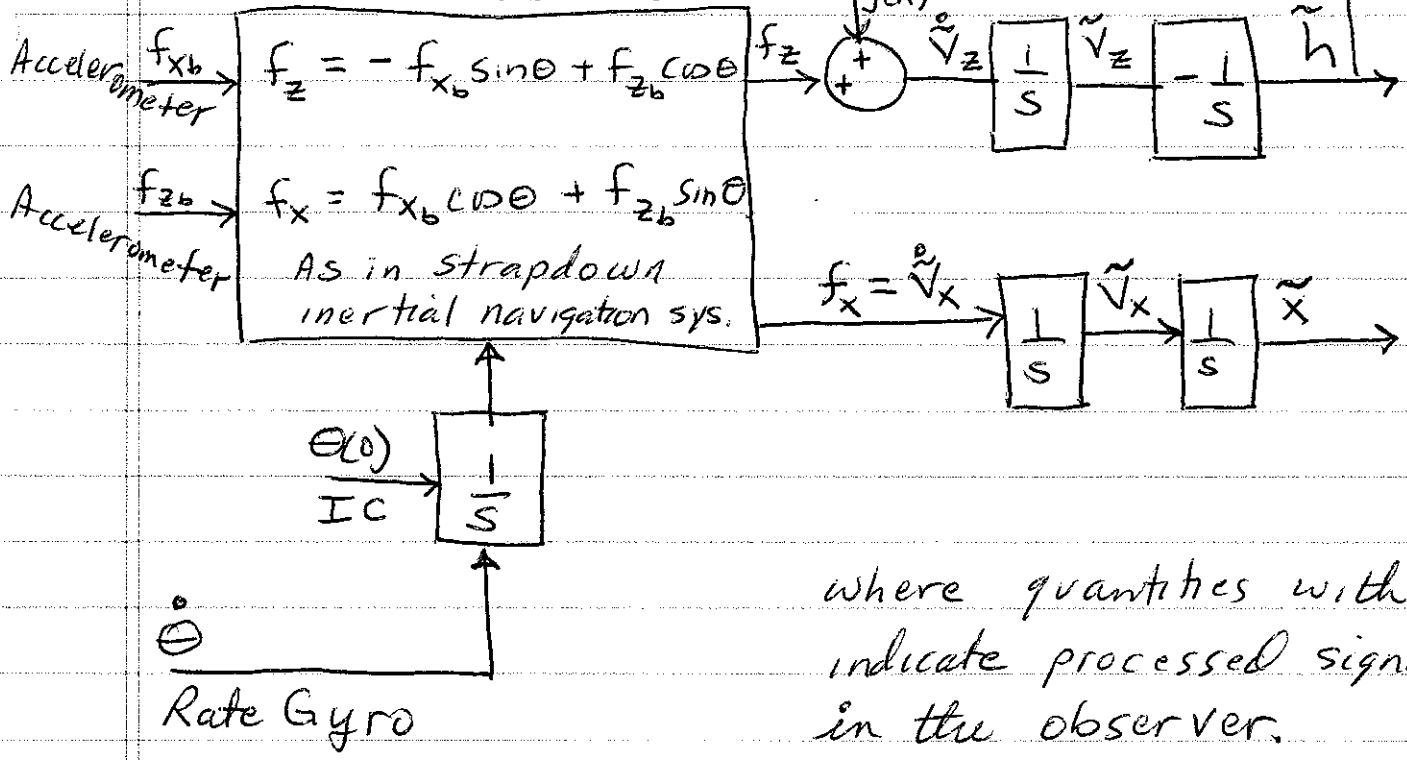 g(h)
Accelerometer f_xb f_z = - f_xb sinθ + f_zb cosθ f_z + + ṽ̇_z 1/s ṽ_z - 1/s h̃
Accelerometer f_zb f_x = f_xb cosθ + f_zb sinθ
As in strapdown
inertial navigation sys.
f_x = ṽ̇_x 1/s ṽ_x 1/s x̃
θ(0)
IC
1/s
θ̇
Rate Gyro
where quantities with
indicate processed sign
in the observer.